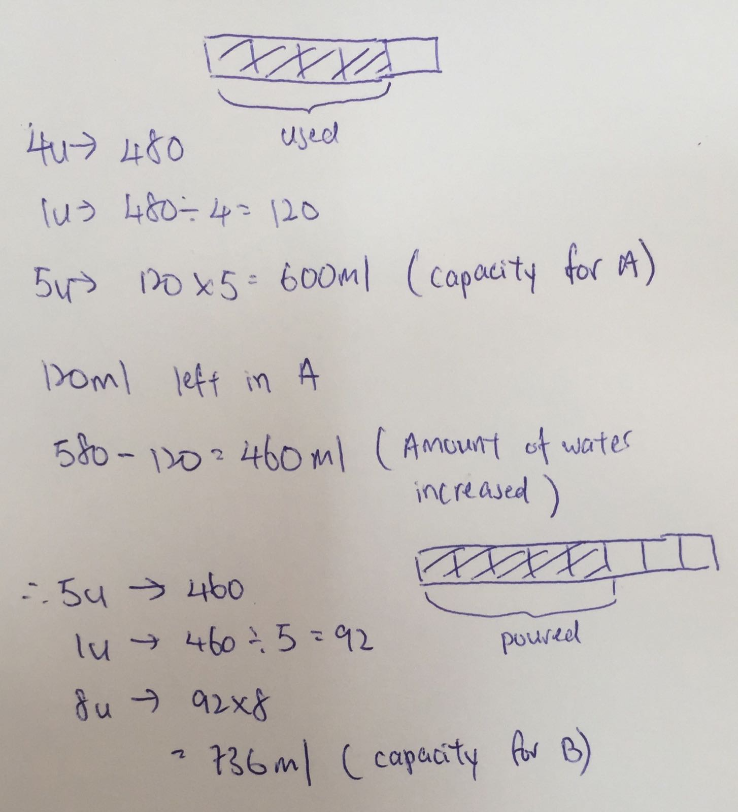 used
4u → 480
1u → 480 ÷ 4 = 120
5u → 120 × 5 = 600ml (capacity for A)
120ml left in A
580 - 120 = 460ml (Amount of water
increased)
∴ 5u → 460
poured
1u → 460 ÷ 5 = 92
8u → 92×8
= 736ml (capacity for B)